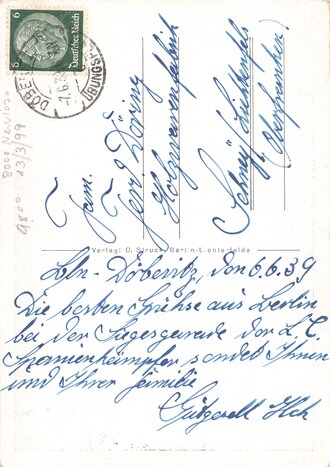 6 Deutsches Reich 6
DÖBERITZ
ÜBUNGSPL
7.6.39
8000 
9800 13/3/99
Fam.
Fritz Döring
Holzwarenfabrik
Schney/Lichtenfels
(Oberfranken)
Verlag: O. Struck, Berlin-Lichterfelde
Bln-Döberitz, den 6.6.39
Die besten Grüße aus Berlin
bei der Siegesparade der L. C.
Spanienkämpfer sendet Ihnen
und Ihrer Familie